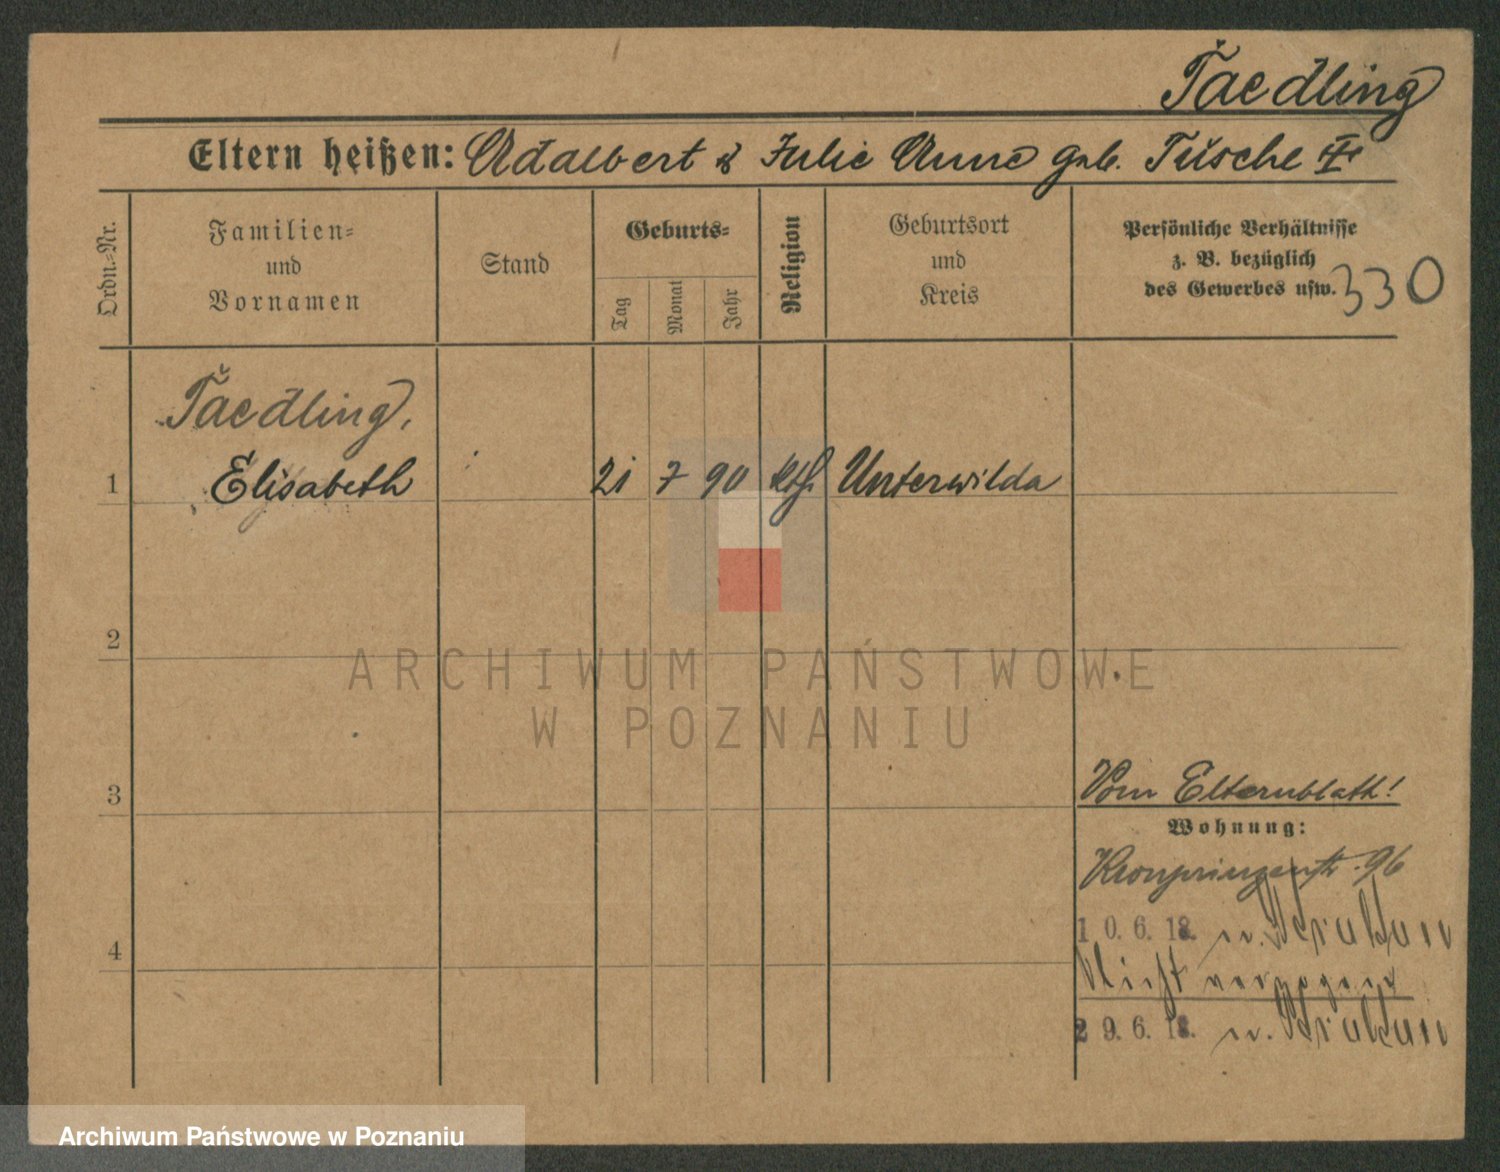 Taedling
Eltern heißen: Adalbert & Julie Anne geb. Tüsche
Ordn.=Nr.
Familien=
und
Vornamen
Stand
Geburts=
Tag
Monat
Jahr
Religion
Geburtsort
und
Kreis
Persönliche Verhältnisse
z. B. bezüglich
des Gewerbes usw.
330
Taedling,
1 Elisabeth 21 7 90 kth. Unterwilda
2
ARCHIWUM PAŃSTWOWE
W POZNANIU
3
Vom Elternblatt!
Wohnung:
Kronprinzenstr. 96
10. 6. 18. n.
4
Nicht verzogen
29. 6. 18. n.
Archiwum Państwowe w Poznaniu